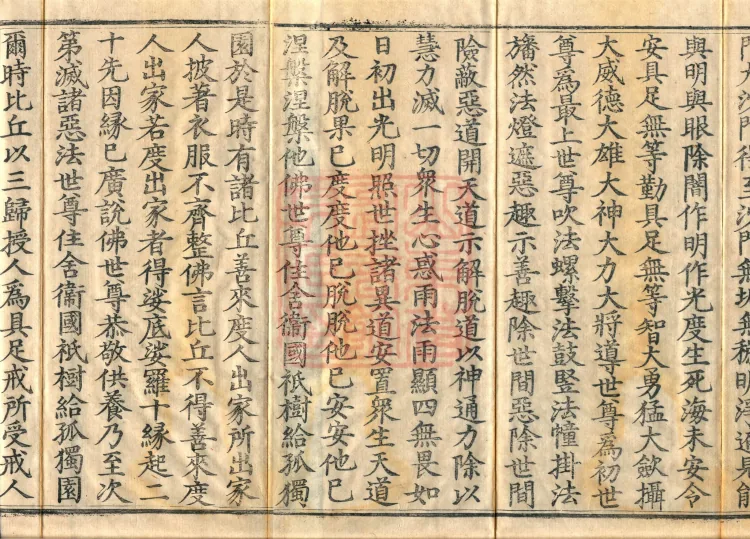 與明與眼除闇作明作光度生死海未安令
安具足無等勤具足無等智大勇猛大歛攝
大威德大雄大神大力大將導世尊為初世
尊為最上世尊吹法螺擊法鼓竪法幢掛法
旛然法燈遮惡趣示善趣除世間惡除世間
險敵惡道開天道示解脫道以神通力除以
慧力滅一切衆生心惑雨法雨顯四無畏如
日初出光明照世挫諸異道安置衆生天道
及解脫果已度度他已脫脫他已安安他已
涅槃涅槃他佛世尊住舍衞國祇樹給孤獨
園於是時有諸比丘善來度人出家所出家
人披著衣服不齊整佛言比丘不得善來度
人出家若度出家者得娑底娑羅十緣起二
十先因緣已廣說佛世尊恭敬供養乃至次
第滅諸惡法世尊住舍衞國祇樹給孤獨園
爾時比丘以三歸授人為具足戒所受戒人